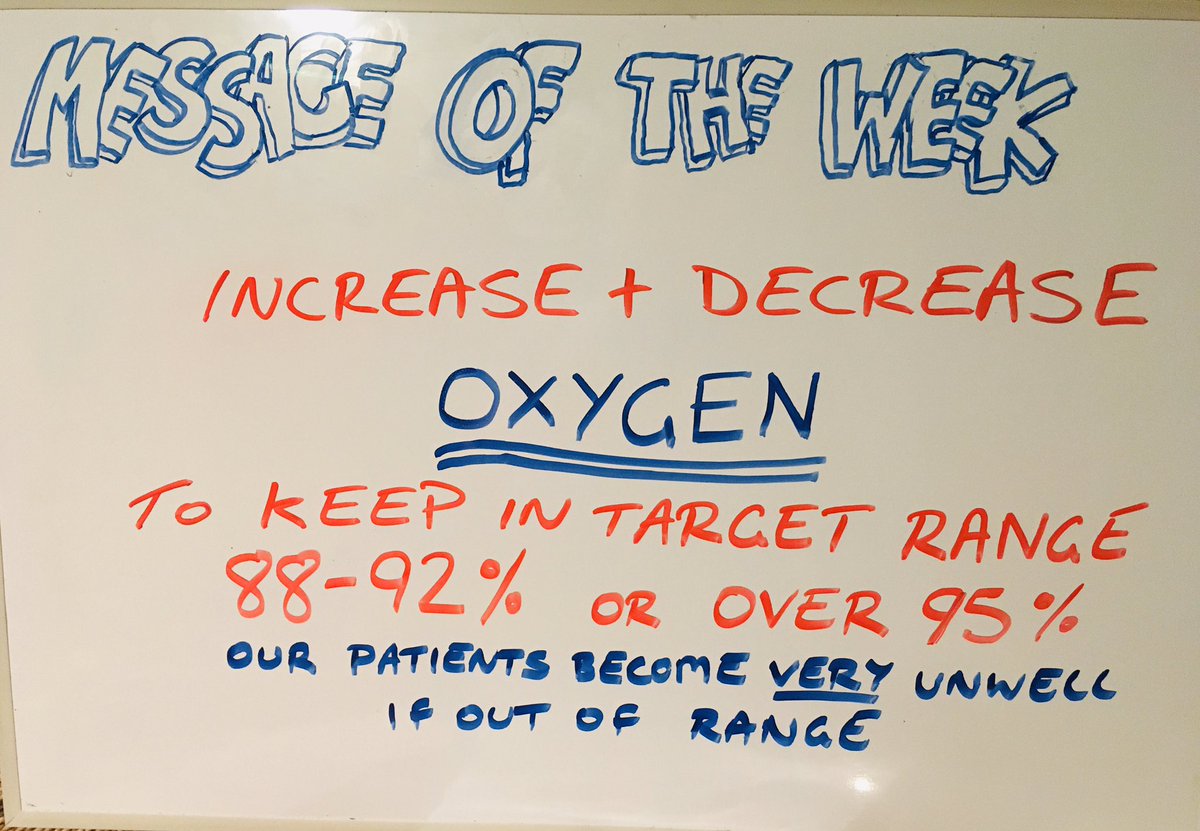 MESSAGE OF THE WEEK
INCREASE + DECREASE
OXYGEN
TO KEEP IN TARGET RANGE
88-92% OR OVER 95%
OUR PATIENTS BECOME VERY UNWELL
IF OUT OF RANGE